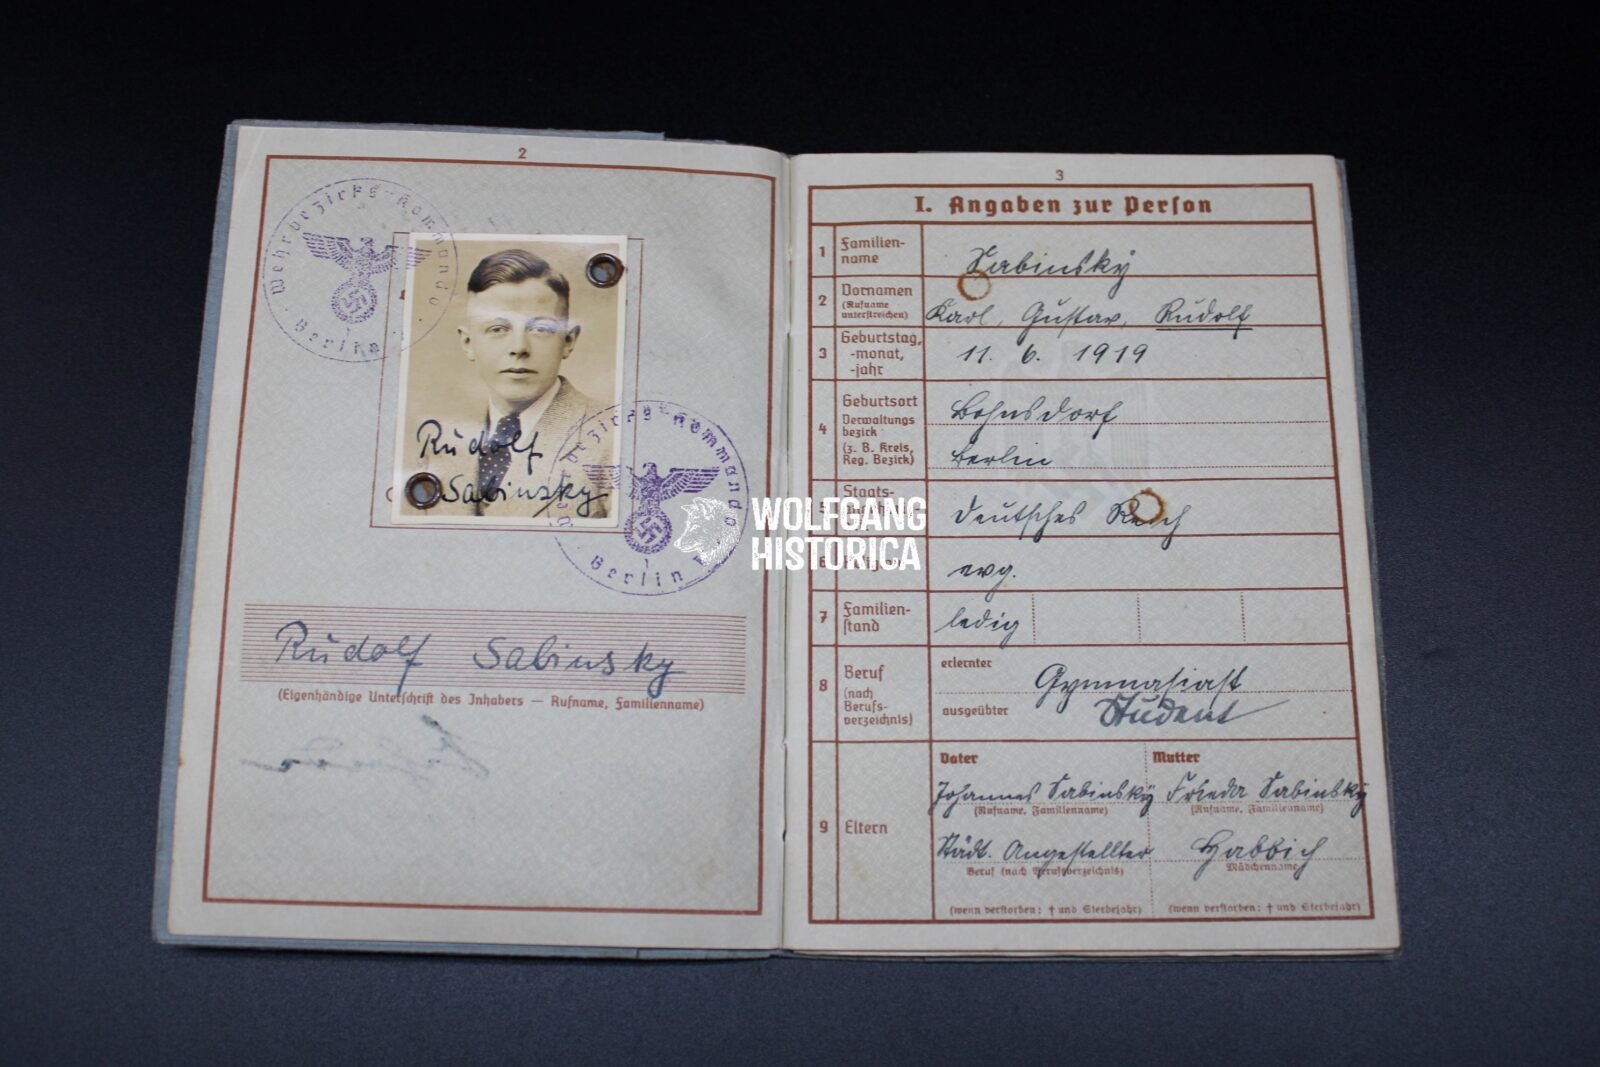 2
Wehrbezirks-Kommando
Berlin
Rudolf
Sabinsky
bezirks-Kommando
Berlin
1
Rudolf Sabinsky
(Eigenhändige Unterschrift des Inhabers — Rufname, Familienname)
WOLFGANG
HISTORICA
3
I. Angaben zur Person
1 Familien-
name
Sabinsky
2 Vornamen
(Rufname
unterstreichen)
Karl, Gustav, Rudolf
3 Geburtstag,
-monat,
-jahr
11. 6. 1919
4 Geburtsort
Verwaltungs
bezirk
(z. B. Kreis,
Reg. Bezirk)
Bohnsdorf
Berlin
5 Staats-
Deutsches Reich
6
evg.
7 Familien-
stand
ledig
8 Beruf
(nach
Berufs-
verzeichnis)
erlernter
Gymnasiast
ausgeübter
Student
9 Eltern
Vater Mutter
Johannes Sabinsky Frieda Sabinsky
(Rufname, Familienname) (Rufname, Familienname)
Städt. Angestellter Habbich
Beruf (nach Berufsverzeichnis) Mädchenname
(wenn verstorben: † und Sterbejahr) (wenn verstorben: † und Sterbejahr)